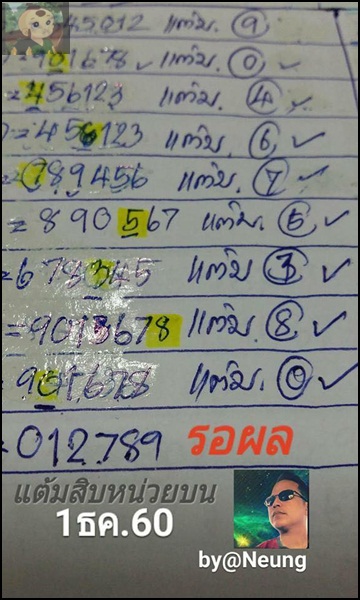 345012 แต้ม. 9
=901678 ✓ แต้ม. 0 ✓
=456123 แต้ม. 4 ✓
=456123 แต้ม. 6 ✓
=789456 แต้ม. 7 ✓
=890567 แต้ม. 5 ✓
=678345 แต้ม 3 ✓
=9013678 แต้ม. 8 ✓
901678 แต้ม. 0 ✓
=012789 รอผล
แต้มสิบหน่วยบน
1ธค.60
by@Neung